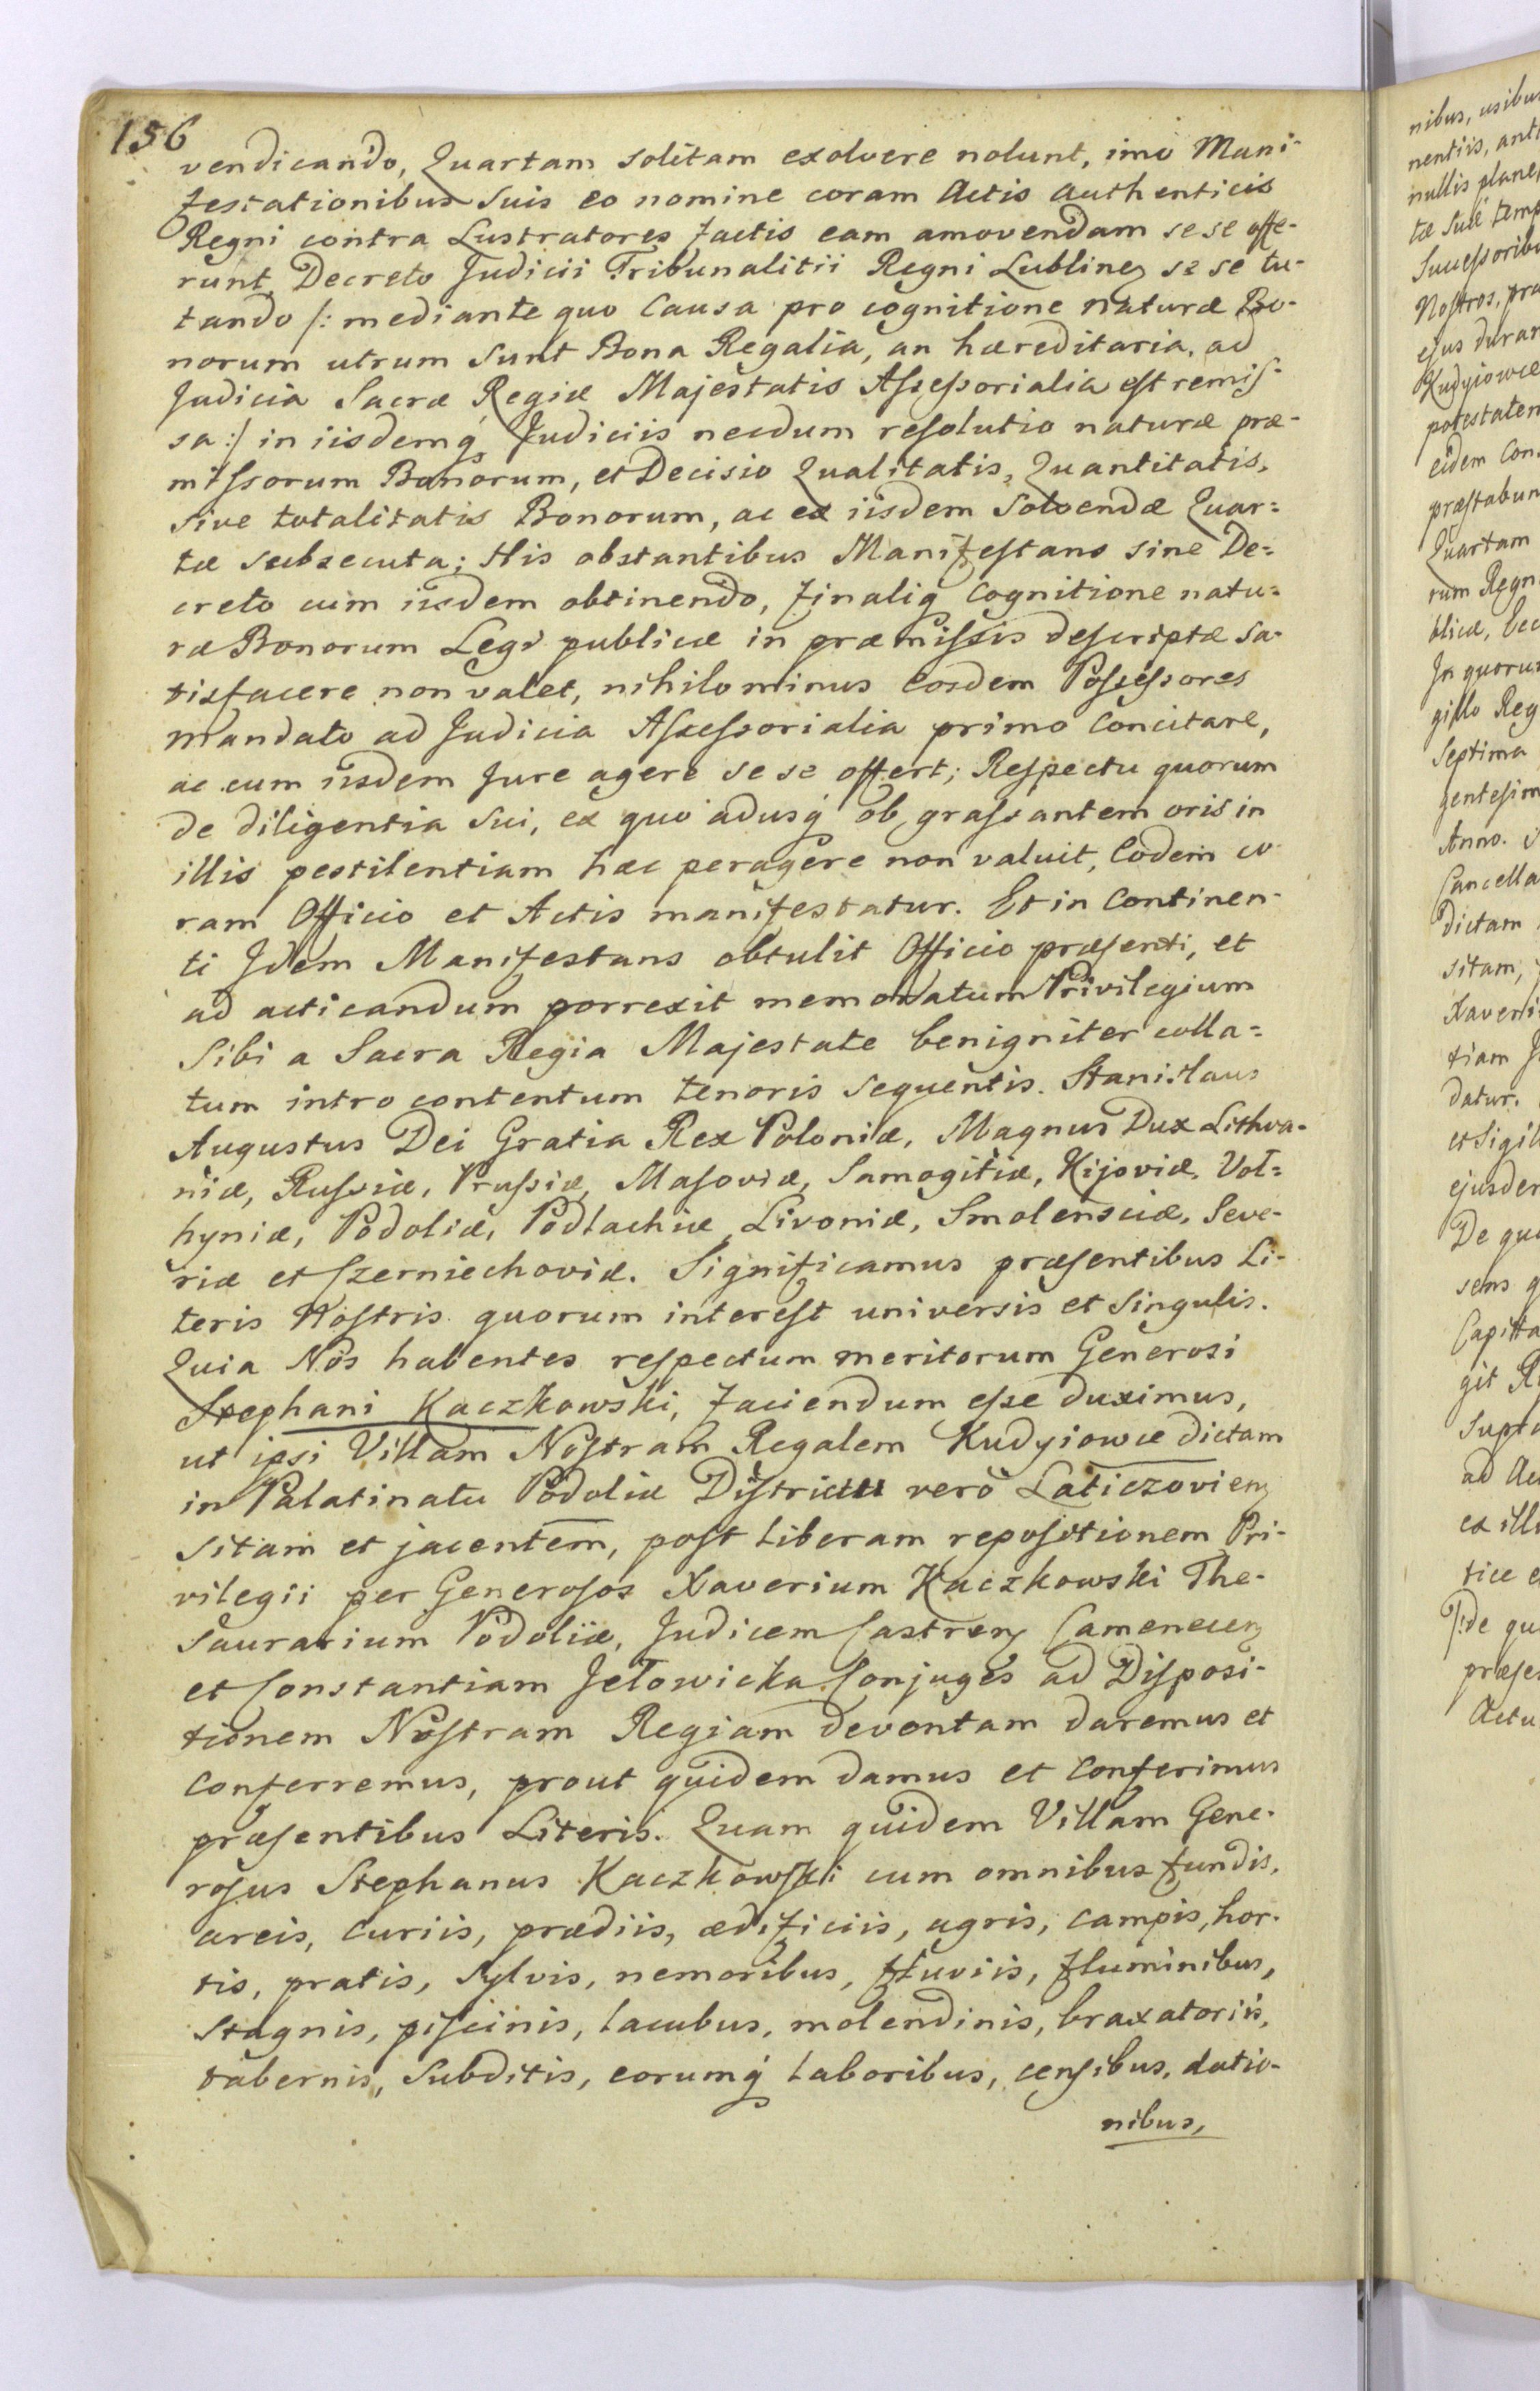 156
vendicando, Quartam solitam exolvere nolunt, imo Mani-
festationibus suis eo nomine coram Actis authenticis
Regni contra Lustratores factis eam amovendam se se offe-
runt, Decreto Judicii Tribunalitii Regni Lublinen se se tu-
tando /: mediante quo Causa pro cognitione naturæ Bo-
norum utrum sunt Bona Regalia, an hæreditaria, ad
Judicia Sacræ Regiæ Majestatis Aſseſsorialia eſt remiſ-
sa :/ in iisdemq Judiciis necdum reſolutio naturæ præ-
miſsorum Bonorum, et Decisio Qualitatis, Quantitatis,
sive totalitatis Bonorum, ac ex iisdem Solvendæ Quar=
tæ subsecuta; His obstantibus Manifeſtans sine De=
creto cum iisdem obtinendo, finaliq Cognitione natu=
ræ Bonorum Legi publicæ in præmiſsis deſcriptæ sa-
tisfacere non valet, nihilominus Eosdem Poſseſsores
mandato ad Judicia Aſseſsorialia primo Concitare,
ac cum iisdem Jure agere se se offert; Reſpectu quorum
de diligentia sui, ex quo adusq ob graſsantem oris in
illis pestilentiam hæc peragere non valuit, Eodem co-
ram Officio et Actis manifestatur. Et in Continen-
ti Idem Manifestans obtulit Officio præſenti, et
ad acticandum porrexit memoratum Privilegium
Sibi a Sacra Regia Majestate benigniter colla=
tum intro contentum tenoris sequentis. Stanislaus
Augustus Dei Gratia Rex Poloniæ, Magnus Dux Lithva-
niæ, Ruſsiæ, Pruſsiæ, Maſoviæ, Samogitiæ, Kijoviæ, Vol=
hyniæ, Podoliæ, Podlachiæ, Livoniæ, Smolensciæ, Seve-
riæ et Czerniechoviæ. Significamus præſentibus Li-
teris Noſtris quorum intereſt universis et singulis.
Quia Nos habentes reſpectum meritorum Generosi
Stephani Kaczkowski, faciendum eſse duximus,
ut ipsi Villam Noſtram Regalem Kudyiowce dictam
in Palatinatu Podoliæ Diſtrictu vero Laticzovien
sitam et jacentem, poſt liberam repoſitionem Pri-
vilegii per Generoſos Xaverium Kaczkowski The-
saurarium Podoliæ, Judicem Castren Camenecen
et Constantiam Jełowicka Conjuges ad Diſposi-
tionem Noſtram Regiam deventam daremus et
Conferremus, prout quidem damus et Conferimus
præſentibus Literis. Quam quidem Villam Gene-
roſus Stephanus Kaczkowſki cum omnibus fundis,
areis, curiis, prædiis, ædificiis, agris, campis, hor-
tis, pratis, Sylvis, nemoribus, fluviis, fluminibus,
Stagnis, piſcinis, lacubus, molendinis, braxatoriis,
tabernis, Subditis, eorumq laboribus, cenſibus, datio-
nibus,
nibus, usibus
nentiis,
nullis plane,
Succeſsoribu
Noſtros,
ejus durar
Kudyiowce
potestatem
eidem Con
præſtabun
Quartam
rum Regn
blicæ,
In quorum
gillo Reg
Septima
genteſim
Anno.
Cancella
dictam
sitam,
Xaveri
tiam J
datur.
et Sigil
ejusdem
De quo
sens q
Capita
git R
ad Ac
ex ill
tice e
de qu
præſe
Actu